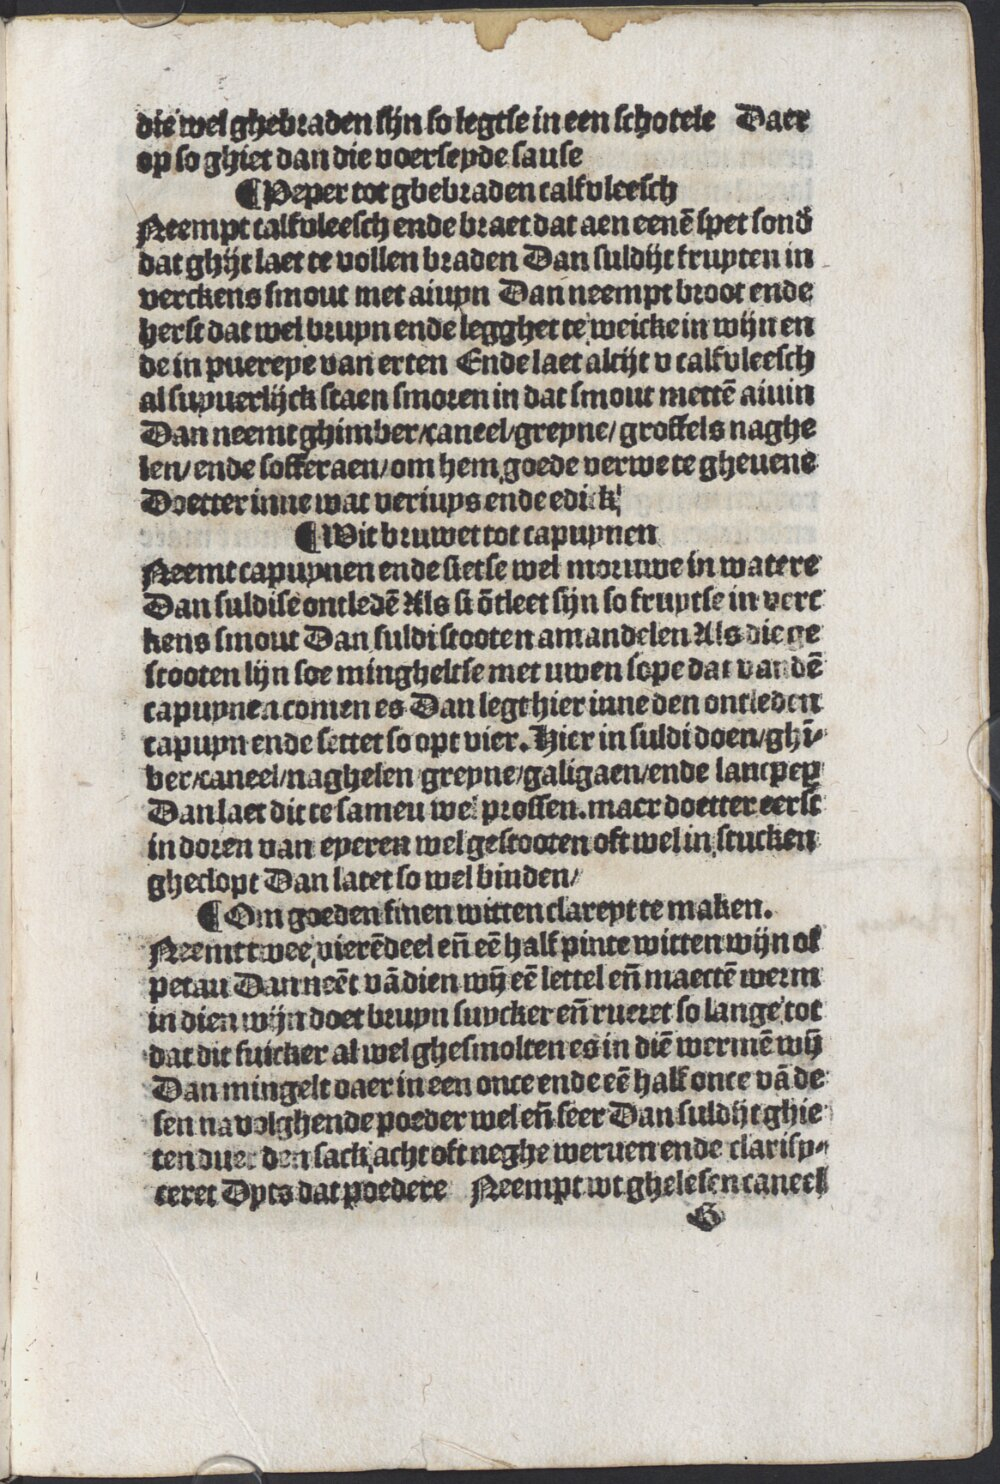 die wel ghebraden sijn so legtse in een schotele Daer
op so ghiet dan die voerseyde sause
¶ Peper tot ghebraden calfvleesch
Neempt calfvleesch ende braet dat aen eenē spet sond̄
dat ghijt laet te vollen braden Dan suldijt fruyten in
verckens smout met aiuyn Dan neempt broot ende
herst dat wel bruyn ende legghet te weicke in wijn en
de in puereye van erten Ende laet altijt v calfvleesch
al suyuerlijck staen smoren in dat smout mettē aiuin
Dan neemt ghimber/caneel/greyne/groffels naghe
len/ende soffraen/om hem goede verwe te gheuene
Doetter inne wat veriuys ende edick
¶ Wit bruwet tot capuynen
Neemt capuynen ende sietse wel moruwe in watere
Dan suldise ontledē Als si ōtleet sijn so fruytse in verc
kens smout Dan suldi stooten amandelen Als die ge
stooten sijn soe minghelse met uwen sope dat vandē
capuynen comen es Dan legt hier inne den ontleden
capuyn ende settet so opt vier. Hier in suldi doen/ghī-
ver/caneel/naghelen/greyne/galigaen/ende lancpep
Dan laet dit te samen wel prossen. maer doetter eerst
in doren van eyeren wel gestooten oft wel in stucken
gheclopt Dan latet so wel binden/
¶ Om goeden finen witten clareyt te maken.
Neemt twee vierēdeel en̄ eē half pinte witten wijn of
petau Dan neēt vā dien wij̄ eē lettel en̄ maectē werm
in dien wijn doet bruyn suycker en̄ rueret so lange tot
dat dit suicker al wel ghesmolten es in diē wermē wij̄
Dan mingelt daer in een once ende eē half once vā de
sen navolghende poeder wel en̄ seer Dan suldijt ghie
ten duer den sack acht oft neghe weruen ende clarify-
ceret Dyts dat poedere Neempt wt ghelesen caneel
G